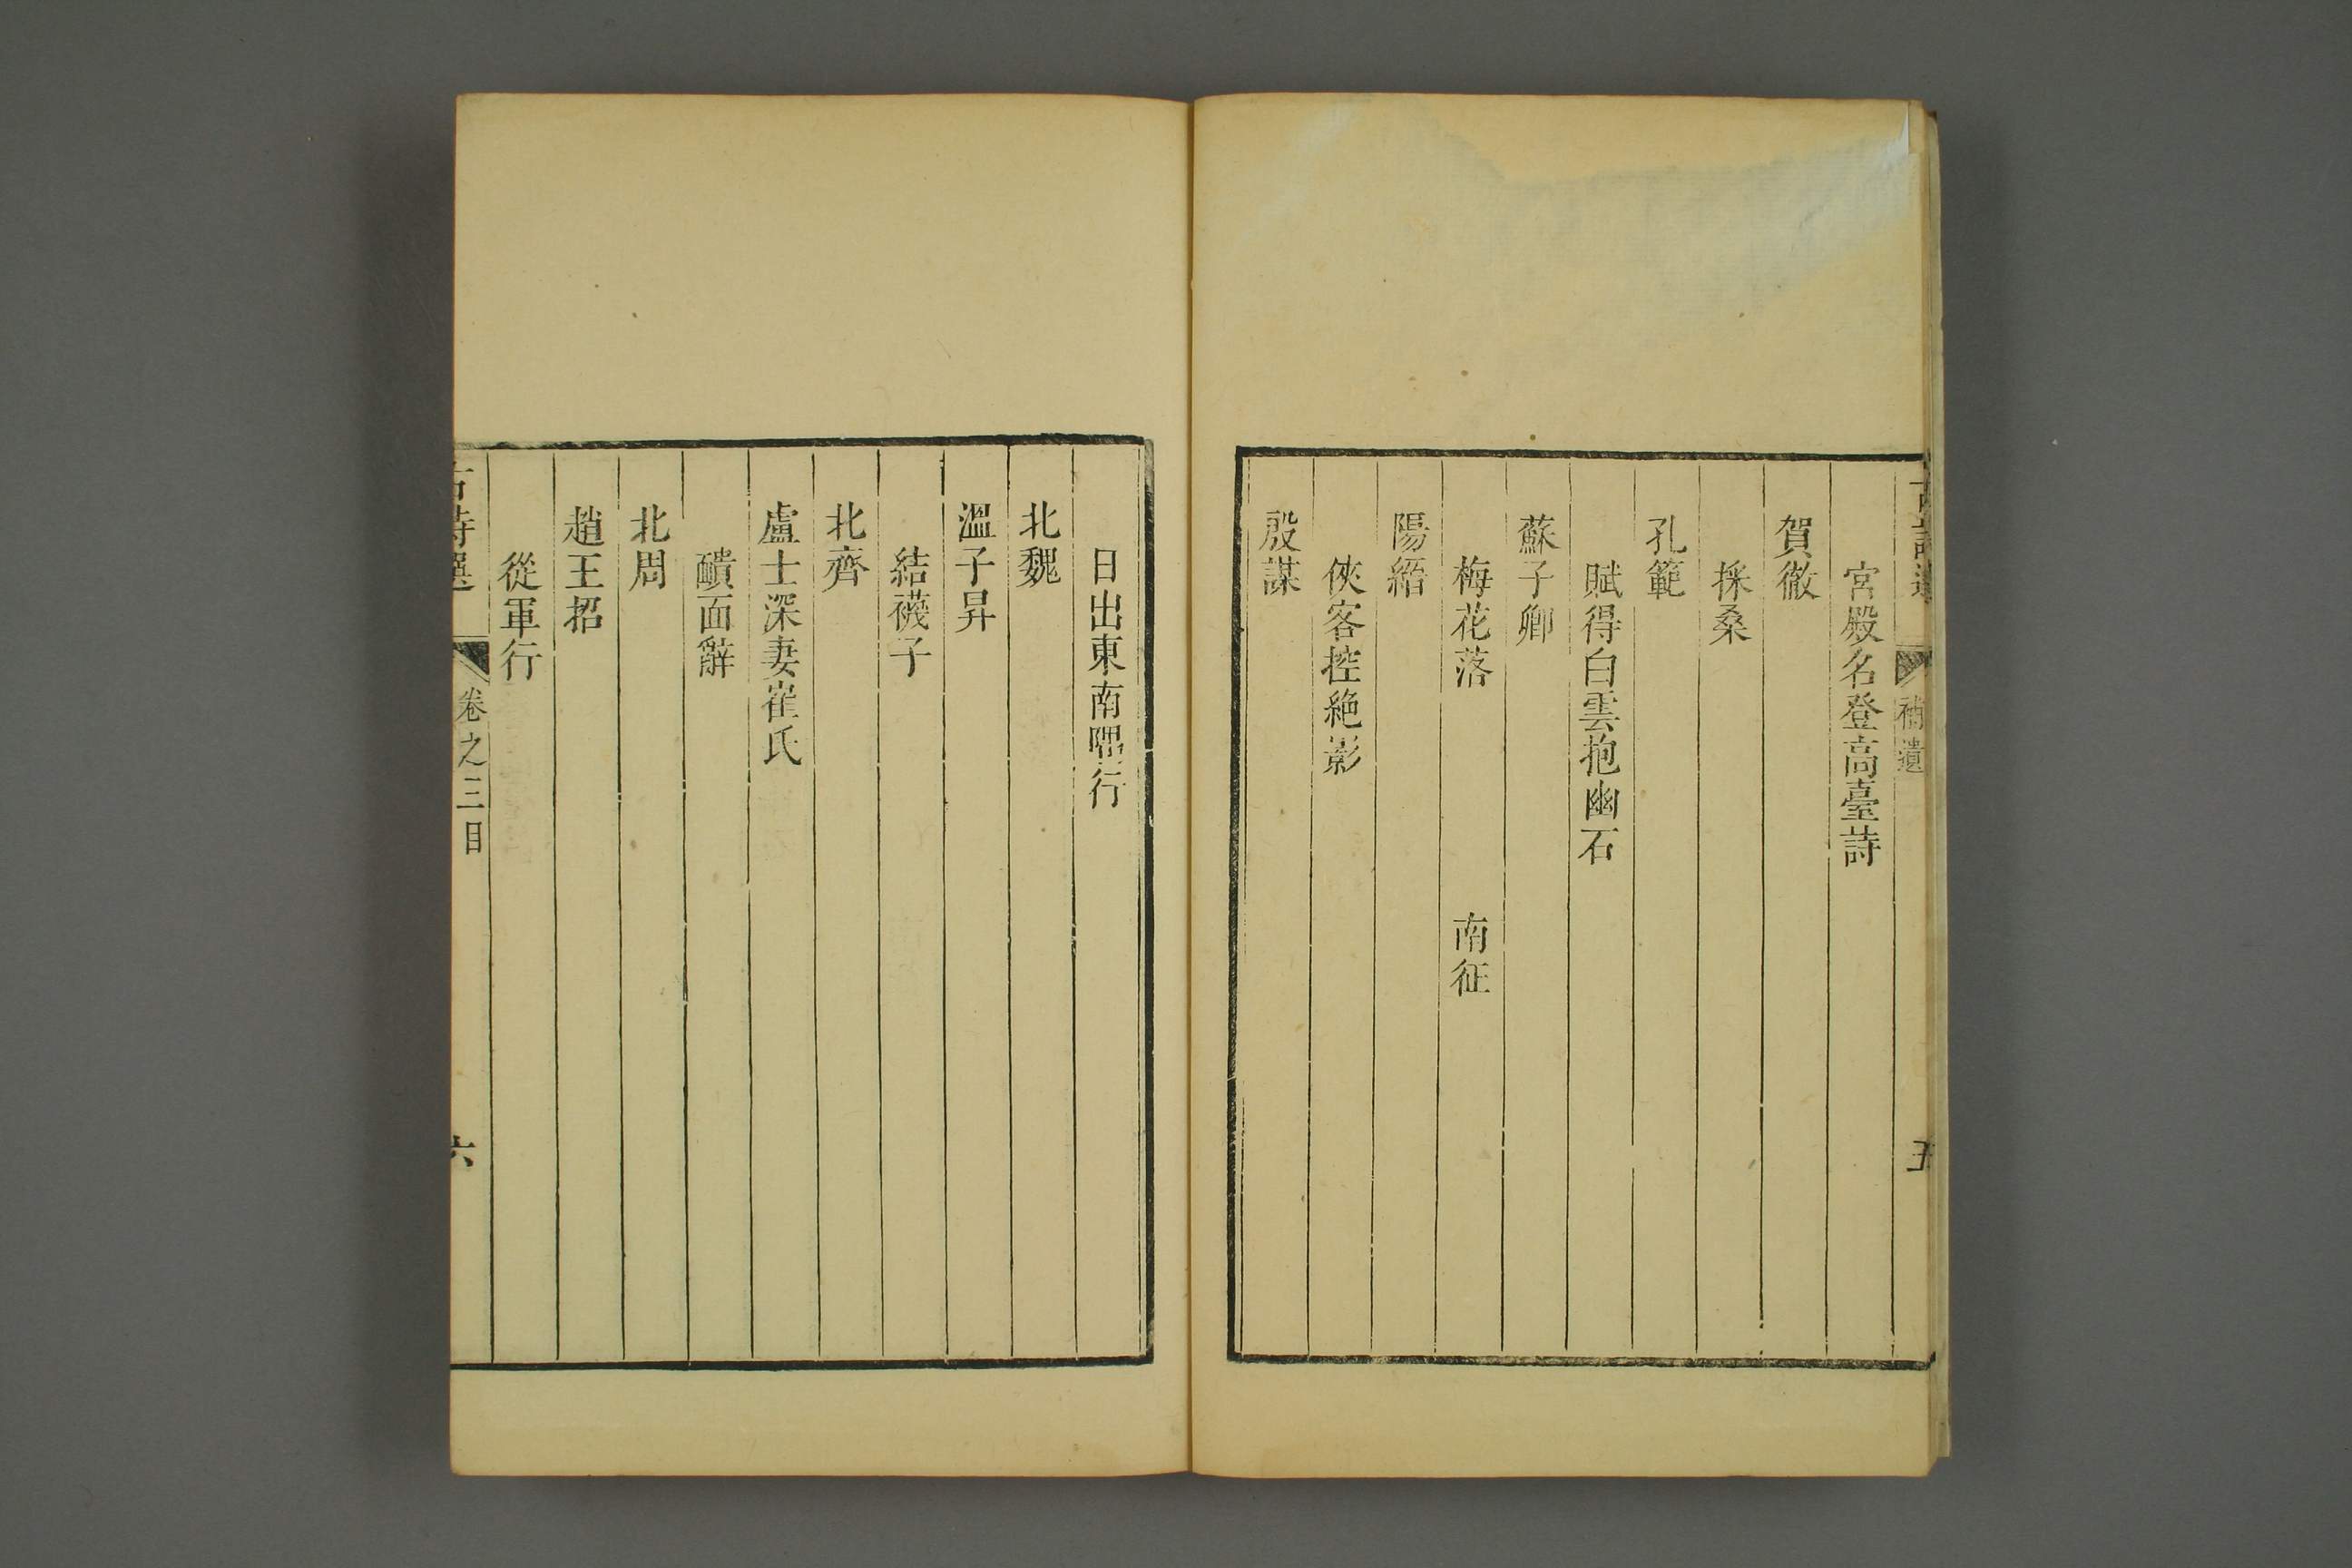 古詩選
補遺
五
宮殿名登高臺詩
賀徹
採桑
孔範
賦得白雲抱幽石
蘇子卿
梅花落 南征
陽縉
俠客控絶影
殷謀
日出東南隅行
北魏
溫子昇
結襪子
北齊
盧士深妻崔氏
靧面辭
北周
趙王招
從軍行
古詩選
卷之三目
六